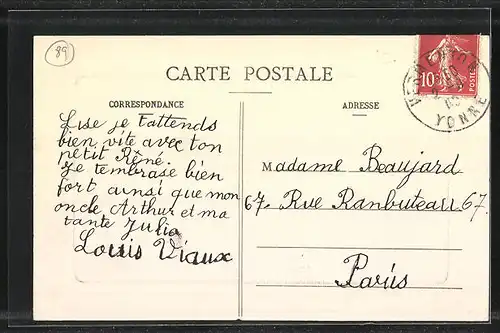 89
CARTE POSTALE
CORRESPONDANCE
ADRESSE
10
POSTES
YONNE
Lise je t'attends
bien vite avec ton
petit Réné.
Je tembrase bien
fort ainsi que mon
oncle Arthur et ma
tante Julia
Louis Viaux
Madame Beaujard
67. Rue Ranbuteau 67.
Paris